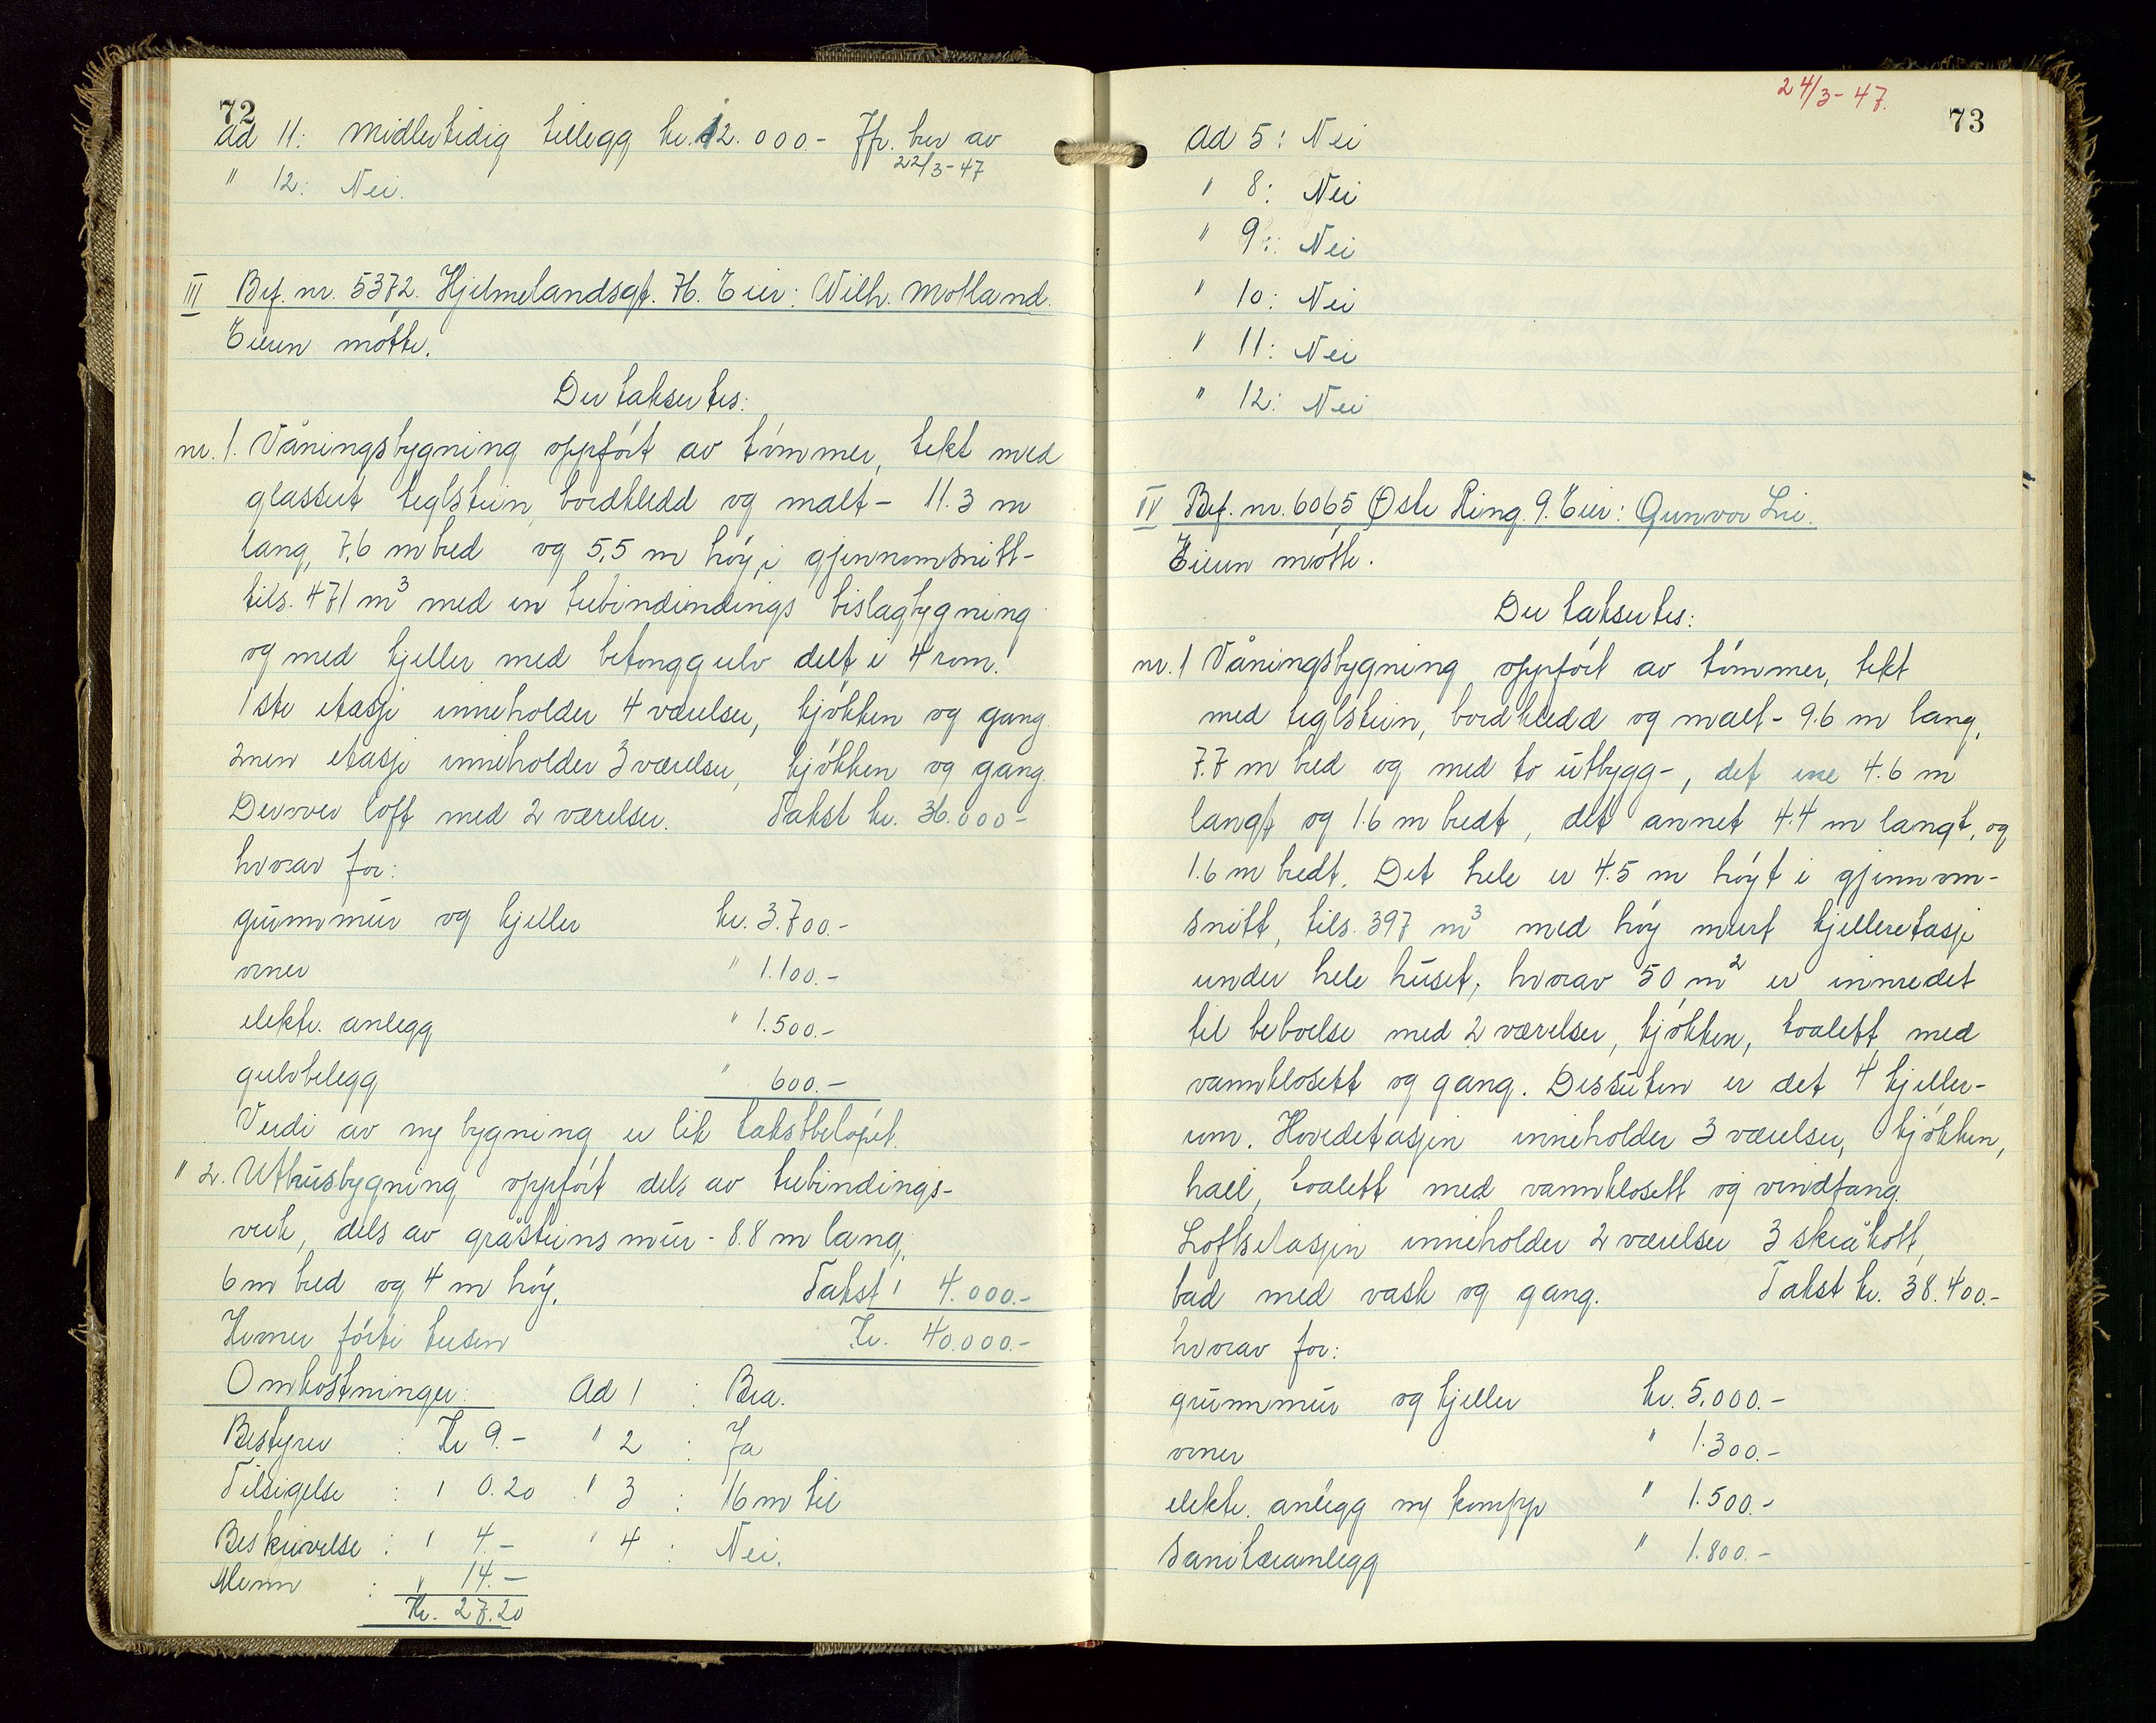 72
Ad 11: Midlertidig tillegg kr. 12.000.- Jfr. brev av
22/3-47
" 12: Nei.
III Bef. nr. 5372. Hjelmelandsgt. 76. Eier: Wilh. Motland.
Eieren møtte.
Der taksertes:
nr. 1. Våningsbygning oppført av tømmer, tekt med
glassert teglstein, bordkledd og malt - 11.3 m
lang, 7,6 m bred og 5,5 m høy i gjennomsnitt -
tils. 471 m³ med en trebindindings bislagbygning
og med kjeller med betonggulv delt i 4 rom.
1ste etasje inneholder 4 værelser, kjøkken og gang.
2nen etasje inneholder 3 værelser, kjøkken og gang.
Derover loft med 2 værelser. Takst kr. 36.000.-
hvorav for:
grunnmur og kjeller kr. 3.700.-
ovner " 1.100.-
elektr. anlegg " 1.500.-
gulvbelegg " 600.-
Verdi av ny bygning er lik takstbeløpet.
" 2. Uthusbygning oppført dels av trebindings-
verk, dels av gråsteinsmur - 8.8 m lang,
6 m bred og 4 m høy. Takst " 4.000.-
Kroner førti tusen Kr. 40.000.-
Omkostninger: Ad 1 : Bra.
Bestyrer : Kr 9.- " 2 : Ja
Tilsigelse : " 0.20 " 3 : 16 m til
Beskrivelse : " 4.- " 4 : Nei.
Menn : " 14.-
Kr. 27.20
24/3-47.
73
Ad 5: Nei
" 8: Nei
" 9: Nei
" 10: Nei
" 11: Nei
" 12: Nei
IV Bef. nr. 6065 Østre Ring 9. Eier: Gunvor Lie.
Eieren møtte.
Der taksertes:
nr. 1 Våningsbygning oppført av tømmer, tekt
med teglstein, bordkledd og malt - 9.6 m lang,
7.7 m bred og med to utbygg -, det ene 4.6 m
langt og 1.6 m bredt, det annet 4.4 m langt, og
1.6 m bredt. Det hele er 4.5 m høyt i gjennom-
snitt, tils. 397 m³ med høy murt kjelleretasje
under hele huset, hvorav 50 m² er innredet
til beboelse med 2 værelser, kjøkken, toalett med
vannklosett og gang. Dessuten er det 4 kjeller-
rom. Hovedetasjen inneholder 3 værelser, kjøkken,
hall, toalett med vannklosett og vindfang.
Loftsetasjen inneholder 2 værelser 3 skråkott,
bad med vask og gang. Takst kr. 38.400.-
hvorav for:
grunnmur og kjeller kr. 5.000.-
ovner " 1.300.-
elektr. anlegg og komfyr " 1.500.-
Sanitæranlegg " 1.800.-